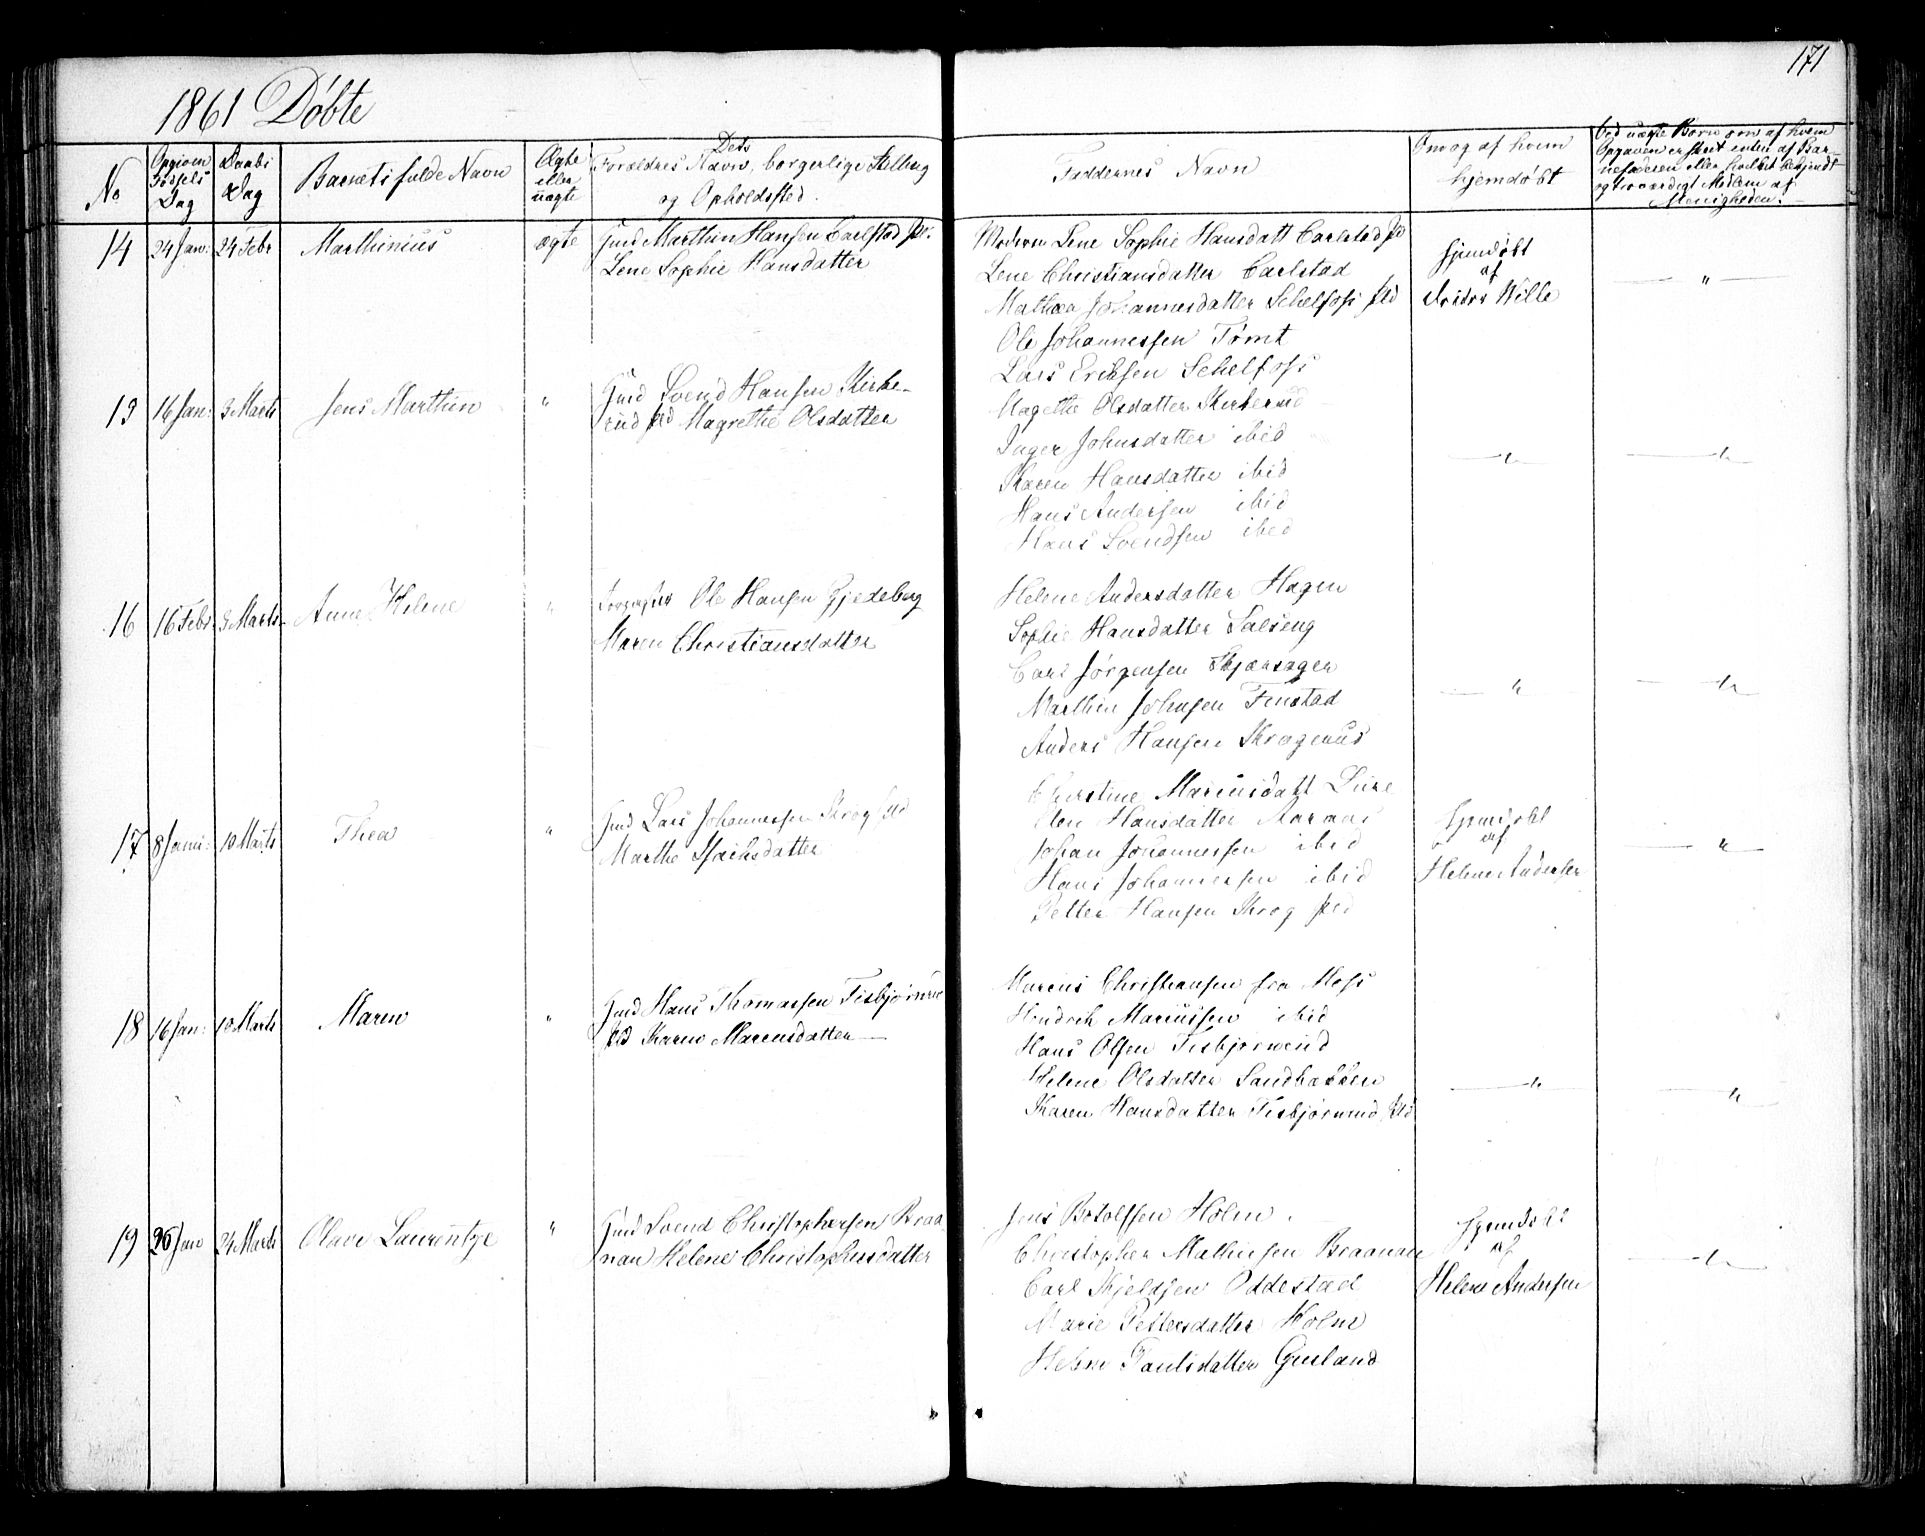 171
1861 Døbte
No
Opgiven Fødsels Dag
Daabs Dag
Barnets fulde Navn
Ægte eller uægte
Dets Forældres Navn, borgerlige Stilling og Opholdssted.
Faddernes Navn
Om og af hvem hjemdøbt
Ved uægte Børn om af hvem Opgaven er skeet enten af Barnefaderen eller hvilket bekjendt og troværdigt Medlem af Menigheden.
14 24 Jan: 24 Febr Marthinius ægte Gmd Marthin Hansen Carlstad
Lene Sophie Hansdatter
Moderen Lene Sophie Hansdatt Carlstad
Lene Christiansdatter Carlstad
Mathea Johannesdatter Schelfoss
Ole Johannessen Tømt
Lars Eriksen Schelfoss
hjemdøbt
af
Wille
"
15 16 Jan: 3 Marts Jens Marthin " Gmd Svend Hansen Kirke-
rud Magrethe Olsdatter
Magethe Olsdatter Kirkerud
Inger Johnsdatter ibid
Karen Hansdatter ibid
Hans Andersen ibid
Hans Svendsen ibid
" "
16 16 Febr 3 Marts Anne Helene " Ole Hansen Gjedeberg
Maren Christiansdatter
Helene Andersdatter Hagen
Sophie Hansdatter Salseng
Carl Jørgensen Skjærsager
Marthin Johnsen Finstad
Anders Hansen Kragerud
" "
17 8 Janu: 10 Marts Thea " Gmd Lars Johannessen Krog
Marthe Isachsdatter
Christine Mariusdatt
Elen Hansdatter Aaraas
Johan Johannessen ibid
Hans Johannessen ibid
Petter Hansen Krog
hjemdøbt
af
Helene Andersen
"
18 16 Jan: 10 Marts Maren " Gmd Hans Thomassen Fisbjørnrud
Karen Marcusdatter
Marcus Christiansen fra Moss
Hendrik Mariussen ibid
Hans Olsen Fisbjørnrud
Helene Olsdatter Sandbakken
Karen Hansdatter Fisbjørnrud
" "
19 26 Jan 24 Marts Olave Laurentze " Gmd Svend Christophersen Braa-
nan Helene Christophersdatter
Jens Botolfsen Holm.
Christopher Mathiesen Braanan
Carl Kjeldsen Oddestad
Marie Pettersdatter Holm
Helene Paulsdatter
hjemdøbt
af
Helene Andersen
"